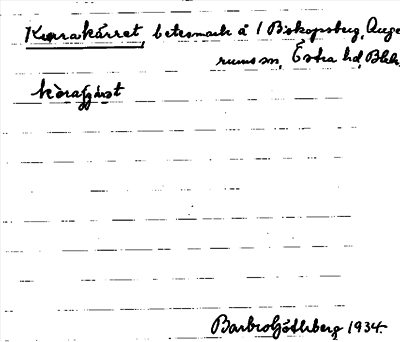 Kvarakärret, betesmark å 1 Biskopsberg, Auge
rums sn, Östra hd, Blek.
kòrafjärət
Barbro Göthberg 1934.